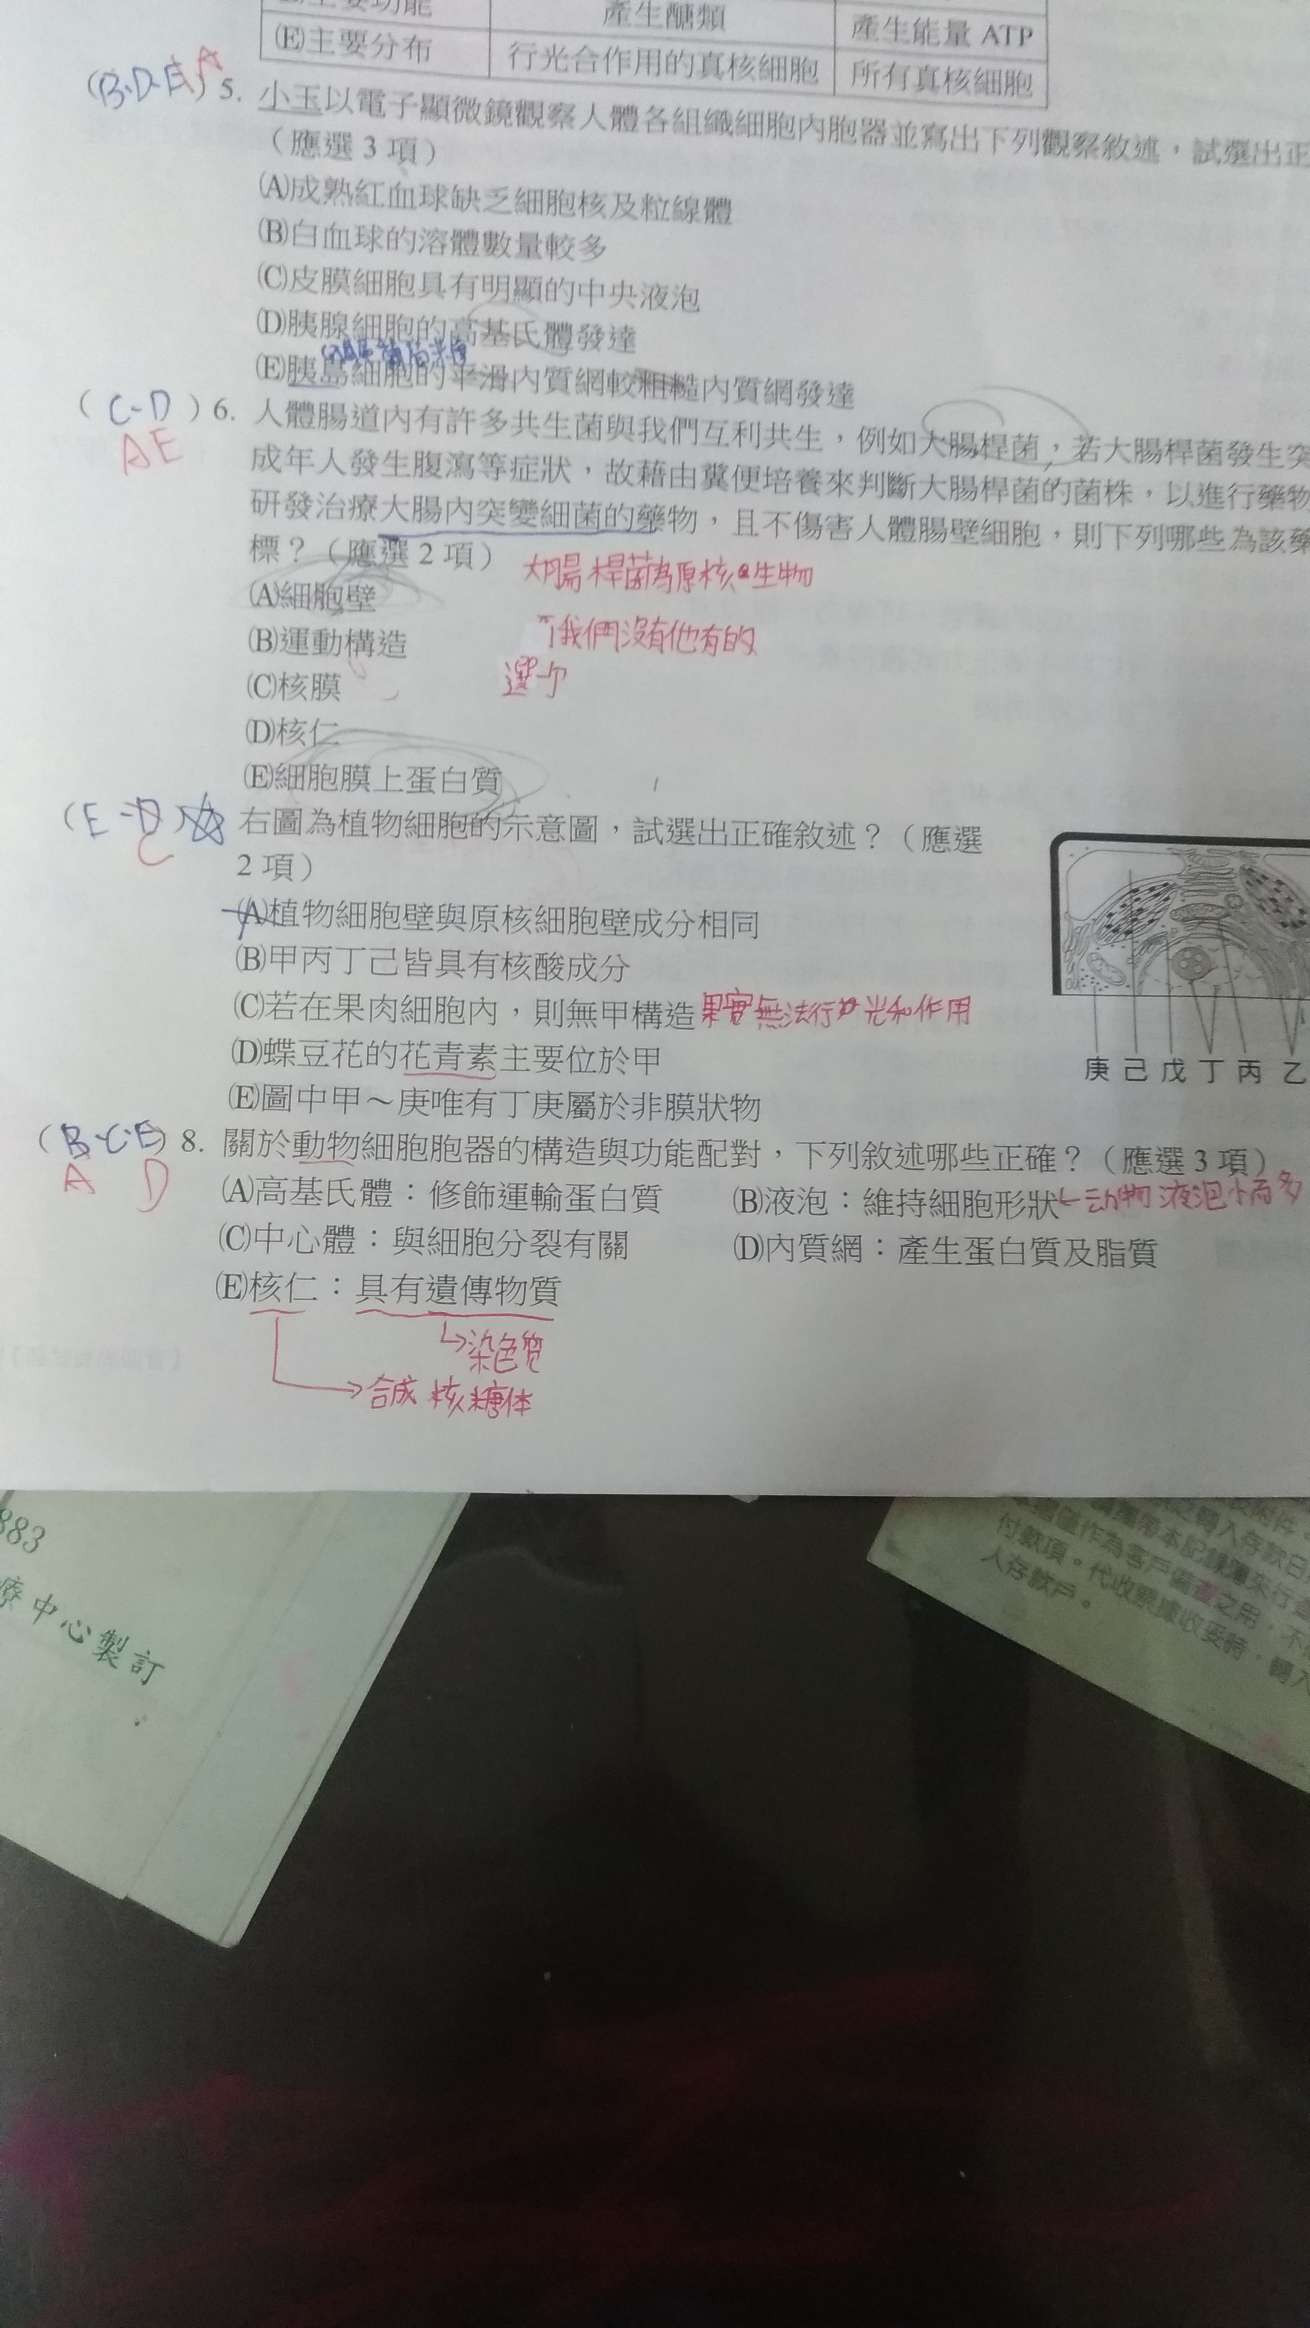 主要功能 產生醣類 產生能量 ATP
(E)主要分布 行光合作用的真核細胞 所有真核細胞
(B.D.E) A 5. 小玉以電子顯微鏡觀察人體各組織細胞內胞器並寫出下列觀察敘述，試選出正
（應選 3 項）
(A)成熟紅血球缺乏細胞核及粒線體
(B)白血球的溶體數量較多
(C)皮膜細胞具有明顯的中央液泡
(D)胰腺細胞的高基氏體發達
(E)胰島細胞的平滑內質網較粗糙內質網發達
( C-D ) 6. 人體腸道內有許多共生菌與我們互利共生，例如大腸桿菌，若大腸桿菌發生突
AE
成年人發生腹瀉等症狀，故藉由糞便培養來判斷大腸桿菌的菌株，以進行藥物
研發治療大腸內突變細菌的藥物，且不傷害人體腸壁細胞，則下列哪些為該藥
標？（應選 2 項）
大腸桿菌為原核生物
(A)細胞壁
(B)運動構造
我們沒有他有的
(C)核膜
選
(D)核仁
(E)細胞膜上蛋白質
(E-D) 右圖為植物細胞的示意圖，試選出正確敘述？（應選
C
2 項）
(A)植物細胞壁與原核細胞壁成分相同
(B)甲丙丁己皆具有核酸成分
(C)若在果肉細胞內，則無甲構造 果實無法行光和作用
(D)蝶豆花的花青素主要位於甲
(E)圖中甲～庚唯有丁庚屬於非膜狀物
庚 己 戊 丁 丙 乙
(B.C.E) 8. 關於動物細胞胞器的構造與功能配對，下列敘述哪些正確？（應選 3 項）
A D
(A)高基氏體：修飾運輸蛋白質 (B)液泡：維持細胞形狀 动物液泡小而多
(C)中心體：與細胞分裂有關 (D)內質網：產生蛋白質及脂質
(E)核仁：具有遺傳物質
染色質
合成核糖体
883
療中心製訂
付款項。代收票據收妥時，轉入
人存款戶。